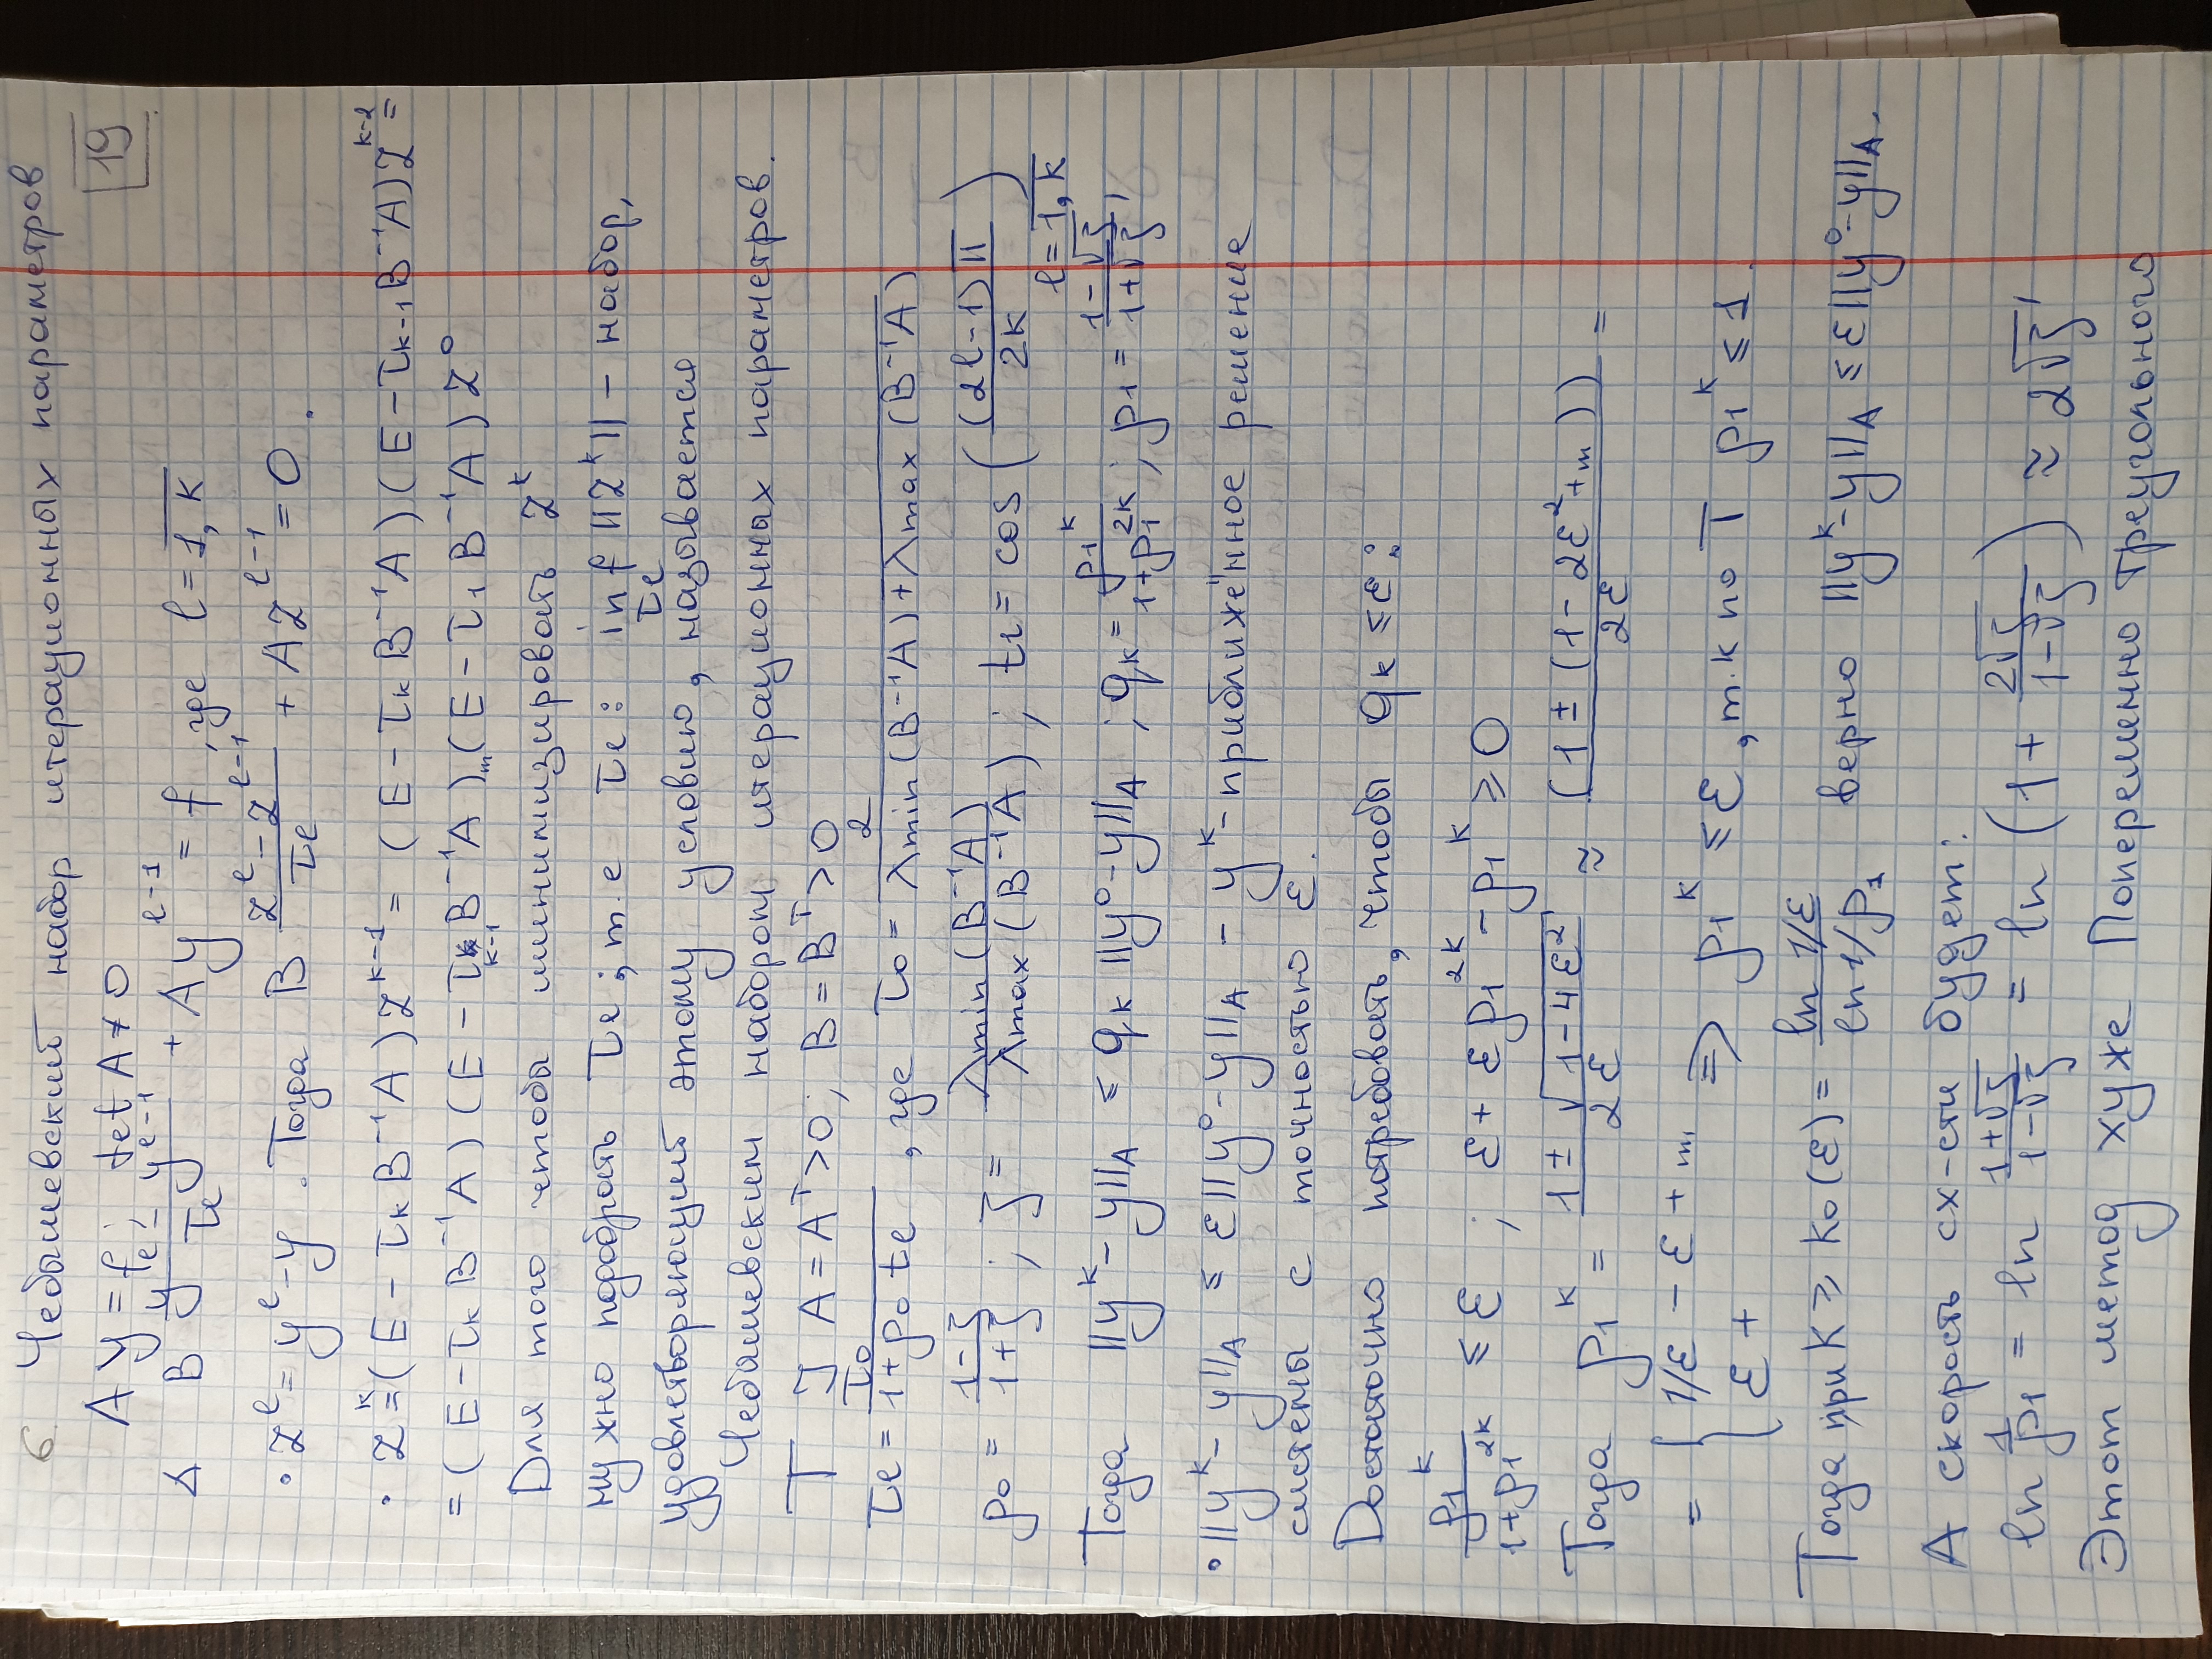 6. Чебышевский набор итерационных параметров
19
Ay = f ; det A ≠ 0
Δ B (y^l - y^{l-1})/τ_l + Ay^{l-1} = f, где l = 1,k
• z^l = y^l - y. Тогда B (z^l - z^{l-1})/τ_l + Az^{l-1} = 0.
• z^k = (E - τ_k B^{-1}A) z^{k-1} = (E - τ_k B^{-1}A)(E - τ_{k-1} B^{-1}A) z^{k-2} =
= (E - τ_k B^{-1}A)(E - τ_{k-1} B^{-1}A)...(E - τ_1 B^{-1}A) z^0
Для того чтобы минимизировать z^k
нужно подобрать τ_l; т.е τ_l: inf_{τ_l} ||z^k|| - набор,
удовлетворяющий этому условию, называется
Чебышевским набором итерационных параметров.
T ] A = A^T > 0; B = B^T > 0
τ_l = τ_0/(1 + ρ_0 t_l), где τ_0 = 2/(λmin(B^{-1}A) + λmax(B^{-1}A))
ρ_0 = (1-ζ)/(1+ζ); ζ = λmin(B^{-1}A)/λmax(B^{-1}A); t_l = cos((2l-1)π/2k) l = 1,k
Тогда ||y^k - y||_A ≤ q_k ||y^0 - y||_A; q_k = ρ_1^k/(1+ρ_1^{2k}); ρ_1 = (1-√ζ)/(1+√ζ)
• ||y^k - y||_A ≤ ε||y^0 - y||_A - y^k - приближённое решение
системы с точностью ε.
Достаточно потребовать, чтобы q_k ≤ ε:
ρ_1^k/(1+ρ_1^{2k}) ≤ ε; ε + ερ_1^{2k} - ρ_1^k ≥ 0
Тогда ρ_1^k = (1 ± √(1-4ε²))/2ε ≈ (1 ± (1 - 2ε² + ...))/2ε =
= { 1/ε - ε + ... ⇒ ρ_1^k ≤ ε, т.к по T ρ_1^k ≤ 1.
ε +
Тогда при k ≥ k_0(ε) = ln 1/ε / ln 1/ρ_1 верно ||y^k - y||_A ≤ ε||y^0 - y||_A.
А скорость сх-сти будет:
ln 1/ρ_1 = ln (1+√ζ)/(1-√ζ) = ln(1 + 2√ζ/(1-√ζ)) ≈ 2√ζ
Этот метод хуже Попеременно треугольного